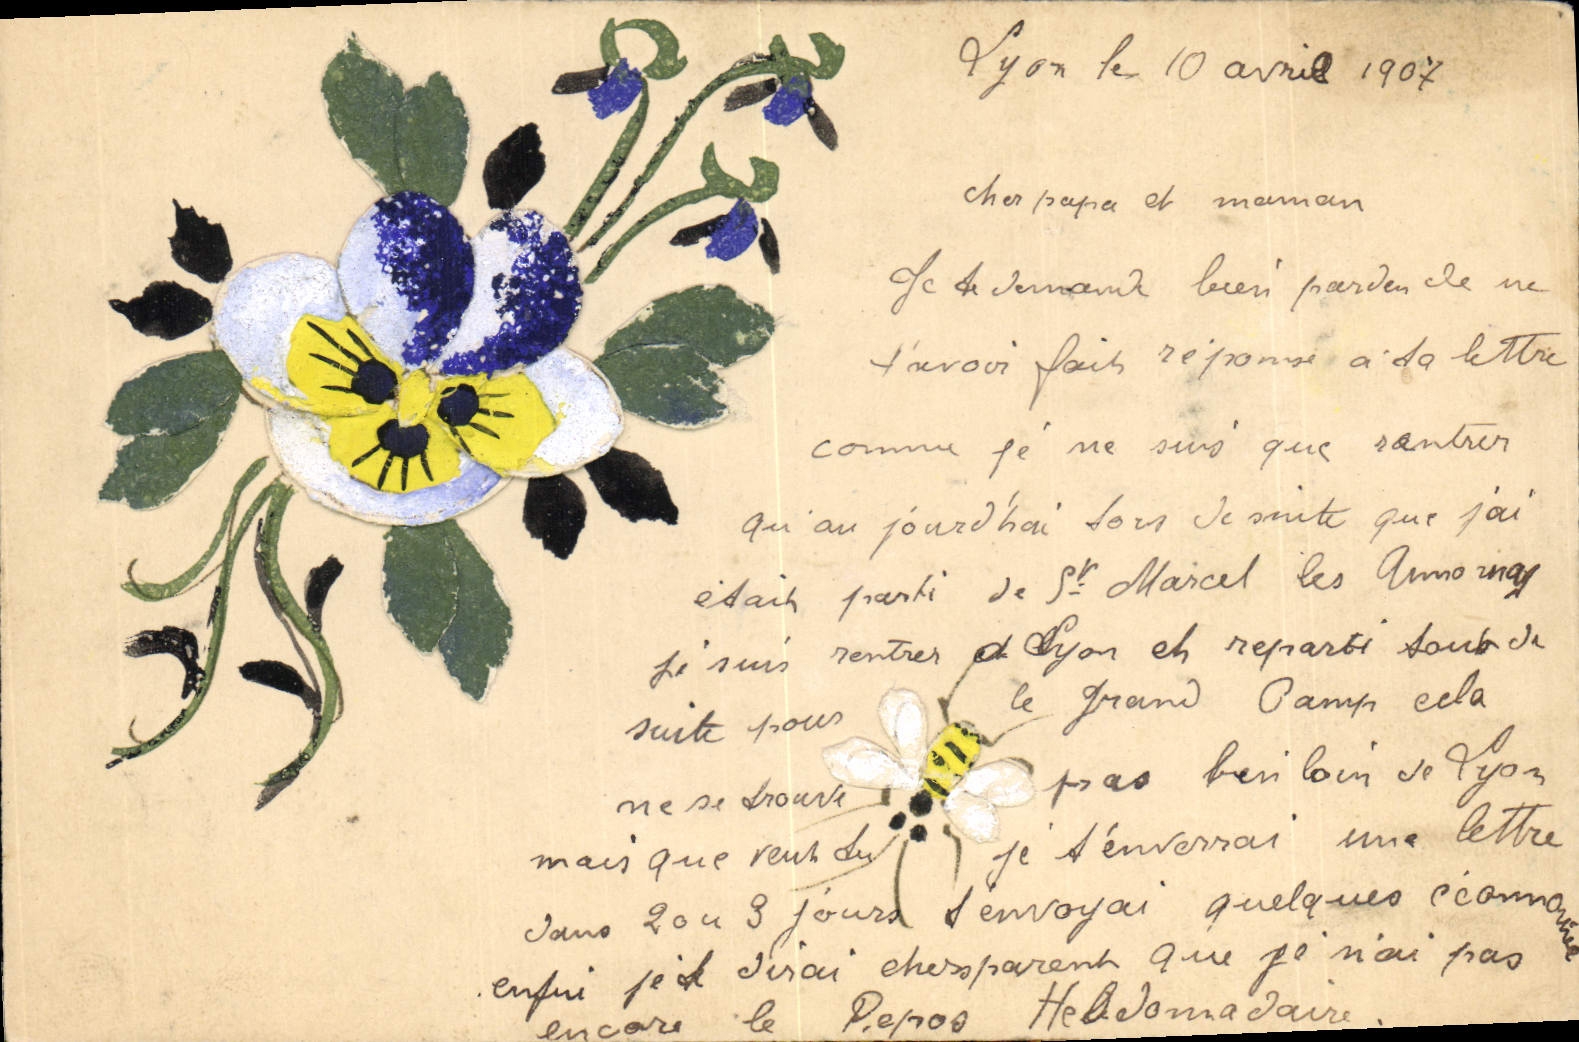 Lyon le 10 avril 1907
cher papa et maman
Je te demande bien parden de ne
t'avoir fait réponse a ta lettre
comme je ne suis que rentrer
qu'au jourd'hai tors de suite que j'ai
était parti de St Marcel les Annonay
je suis rentrer a Lyon et reparti tout de
suite pour le Grand Camp cela
ne se trouve pas bien loin de Lyon
mais que veut tu je t'enverrai une lettre
dans 2 ou 3 jours t'envoyai quelques économies
enfin je te dirai chers parent que je n'ai pas
encore le Repos Hebdomadaire.